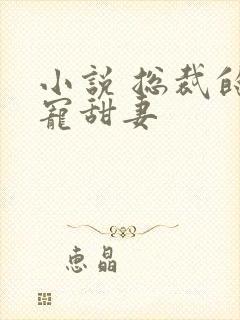 小説 総裁的
寵甜妻
恵晶